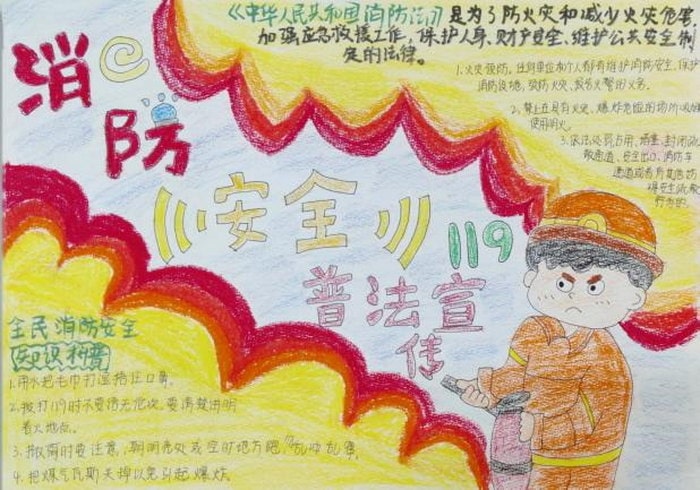 《中华人民共和国消防法》是为了防火灾和减少火灾危害
加强应急救援工作,保护人身、财产安全、维护公共安全制
定的法律。
消
防
安全
119
普法宣
传
1.火灾预防。任何单位和个人都有维护消防安全,保护
消防设施,预防火灾、报告火警的义务。
2.禁止在具有火灾、爆炸危险的场所吸烟
使用明火。
3.依法处罚占用、堵塞、封闭疏
散通道、安全出口、消防车
通道或者
行为的。
全民消防安全
知识科普
1.用水把毛巾打湿捂住口鼻。
2.拨打119时不要
着火地点。
3.
4.把煤气瓦斯关掉以免引起爆炸。